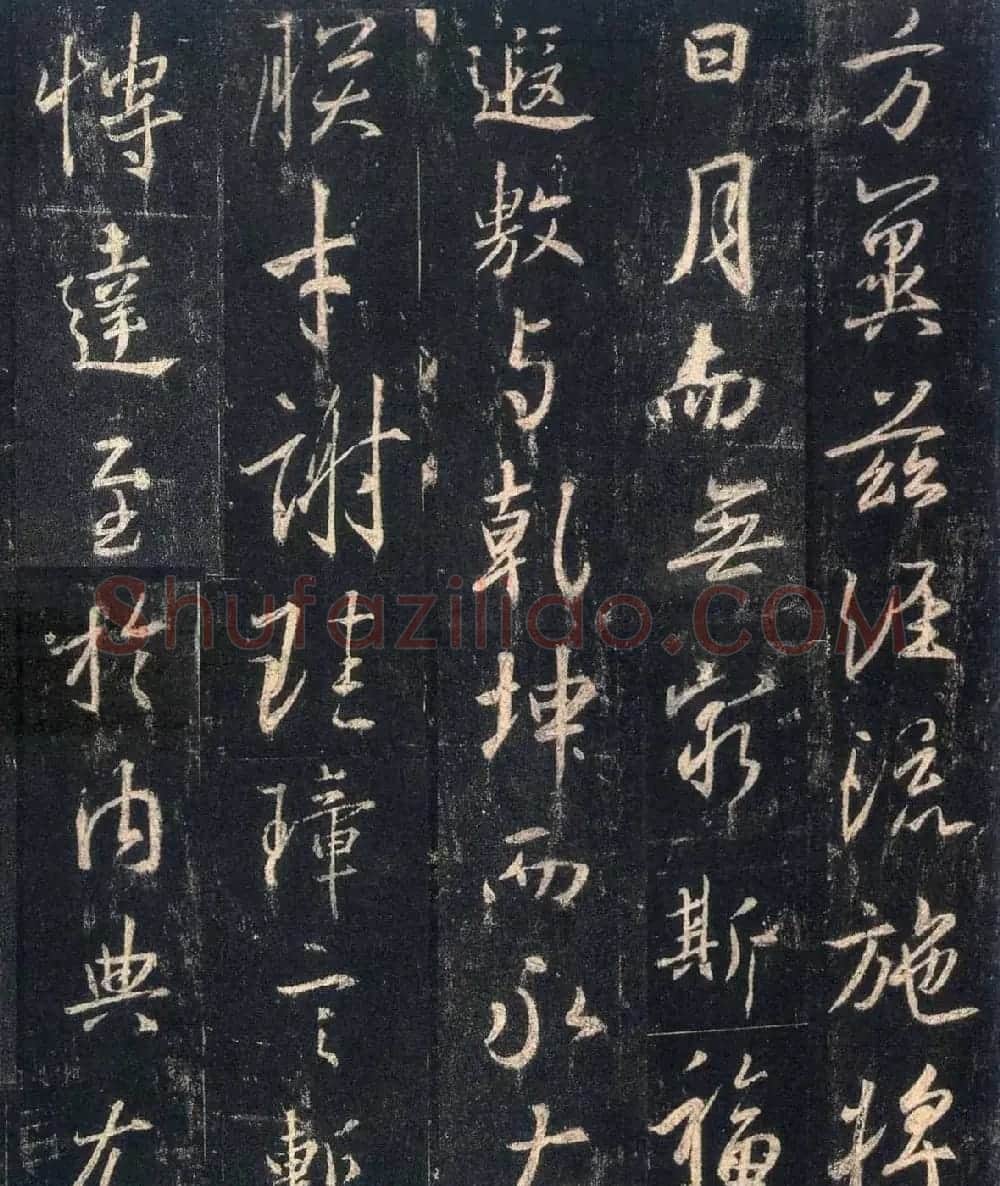 方冀茲經流施將
日月而無窮斯福
遐敷与乾坤而永大
朕才謝珪璋言慙
博達至於內典尤
Shufaziliao.COM